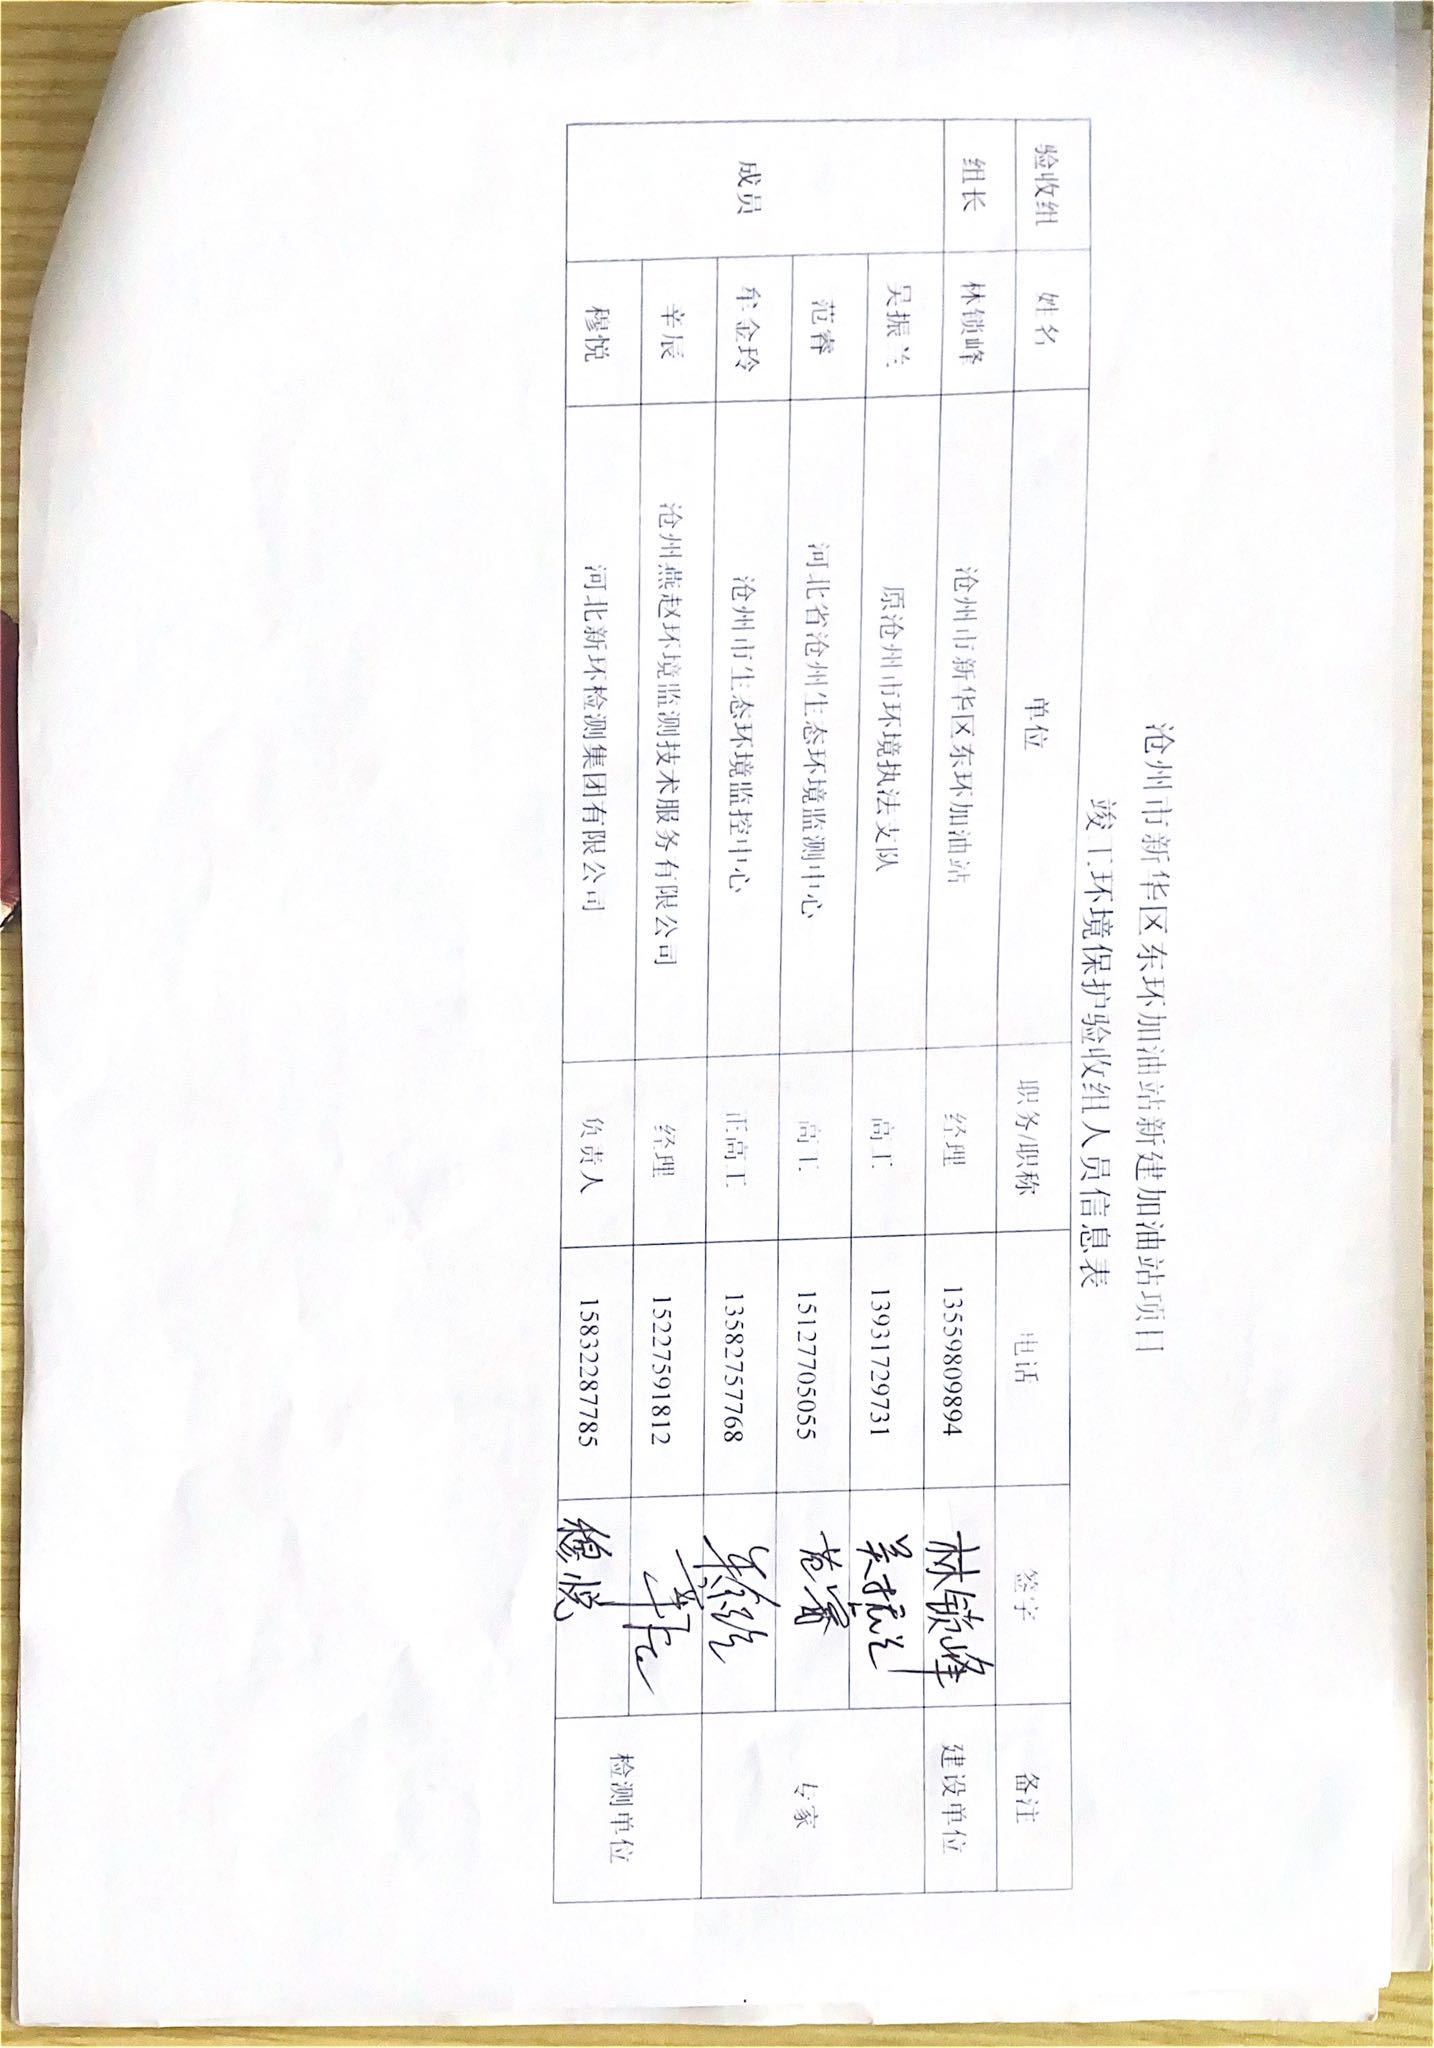 沧州市新华区东环加油站新建加油站项目
竣工环境保护验收组人员信息表
验收组 姓名 单位 职务/职称 电话 签字 备注
组长 林锁峰 沧州市新华区东环加油站 经理 13559809894 林锁峰 建设单位
成员 吴振兰 原沧州市环境执法支队 高工 13931729731 吴振兰 专家
范睿 河北省沧州生态环境监测中心 高工 15127705055 范睿
牟金玲 沧州市生态环境监控中心 正高工 13582757768 牟金玲
辛辰 沧州燕赵环境监测技术服务有限公司 经理 15227591812 辛辰 检测单位
穆悦 河北新环检测集团有限公司 负责人 15832287785 穆悦